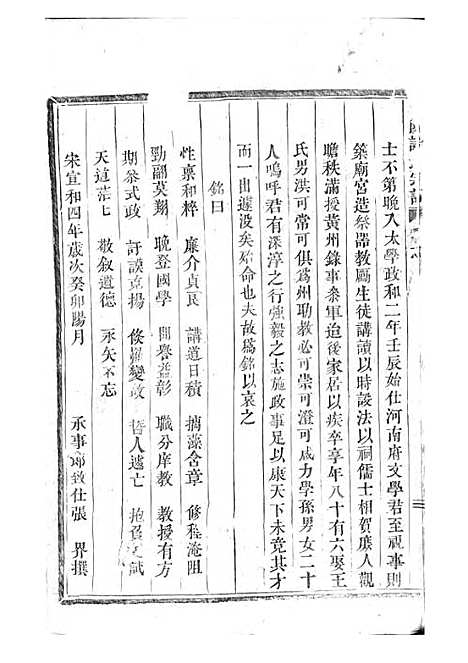 士不第晚入太學政和二年壬辰始仕河南府文學君至視事則
築廟宮造祭器教勵生徒講讀以時設法以祠儒士相賀庶人觀
瞻秩滿授黃州錄事參軍迫後家居以疾卒享年八十有六娶王
氏男洪可常可俱爲州助教必可崇可澄可咸力學孫男女二十
人嗚呼君有深淳之行強毅之志施政事足以康天下未竟其才
而一由遽没矣始命也夫故爲銘以哀之
銘曰
性稟和粹 廉介貞良 講道日積 摛藻含章 修程淹阻
勁翮莫翔 晚登國學 聞譽益彰 職分庠教 教授有方
期參式政 訏謨 揚 倏罹變故 哲人遽亡 抱 
天道茫七 敬叙道德 永矢不忘
宋宣和四年歲次癸卯陽月 承事郎致仕張 界撰